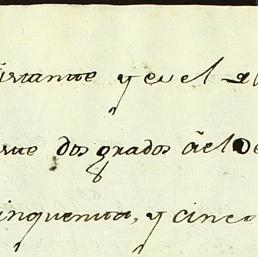 instante y en el
que dos grados áel De
inquenta, y cinco